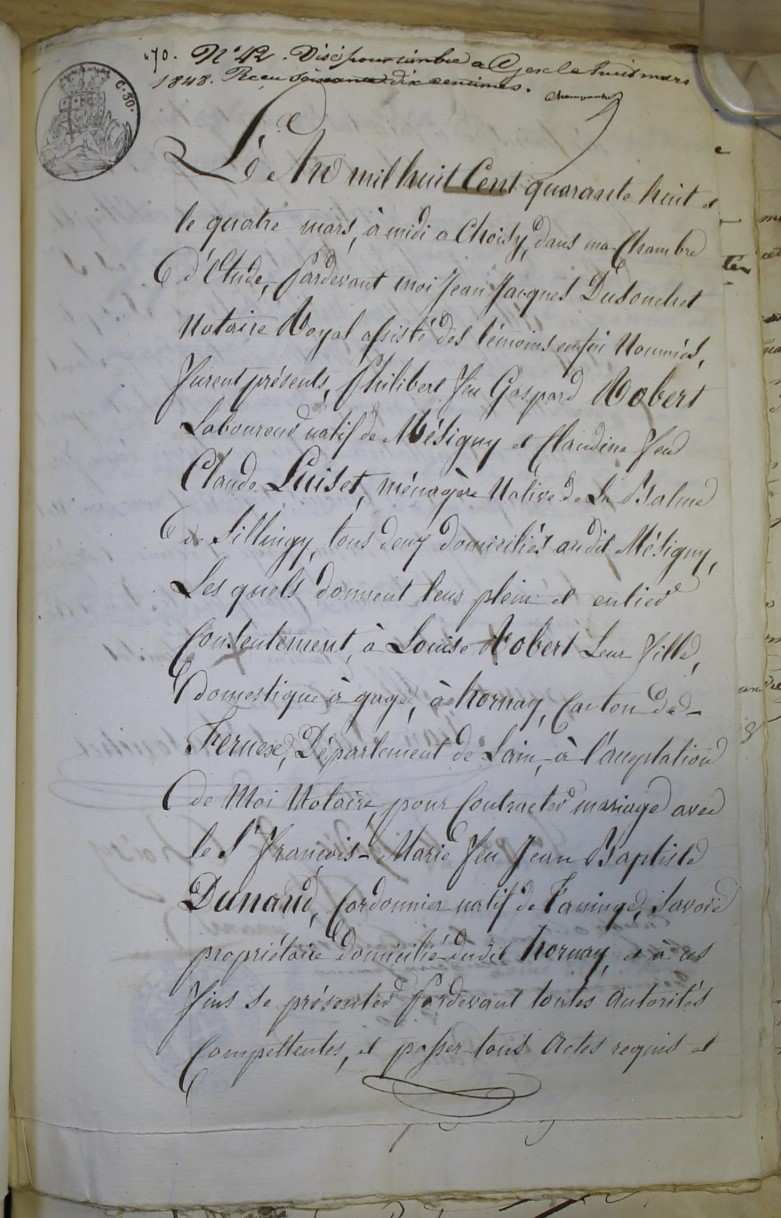 70. N° 42. Visé pour timbre à Gex le huit mars
1848. Reçu soixante dix centimes.
C. 30.
L'An mil huit Cent quarante huit et
le quatre mars, à midi à Choisy, dans ma Chambre
d'Etude, Pardevant moi Jean Jacques Dusonchet
Notaire Royal assisté des témoins enfin Nommés,
Furent présents, Philibert feu Gaspard Robert
Laboureur natif de Mésigny et Claudine feu
Claude Luiset, ménagère Native de La Balme
de Sillingy, tous deux domiciliés audit Mésigny,
Les quels donnent leur plein et entier
Consentement, à Louise Robert Leur fille,
domestique à gage, à Thornay, Canton de
Fernex, Département de Lain, à l'acceptation
de Moi Notaire, pour Contracter mariage avec
le Sr François-Marie feu Jean Baptiste
Dunand, Cordonnier natif de Taninge, Savoie
propriétaire domicilié audit Thornay, et à ces
fins se présenter Pardevant toutes Autorités
Compettentes, et passer tous Actes requis et